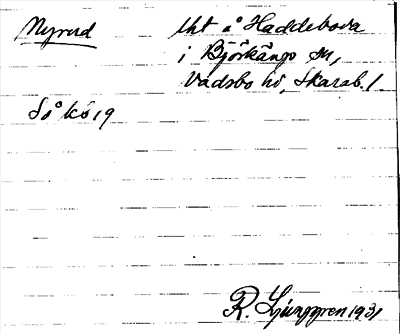 Nyrud
lht å Haddeboda
i Björkängs sn,
Vadsbo hd, Skarab. l.
Så kö 19
R. Ljunggren 1931